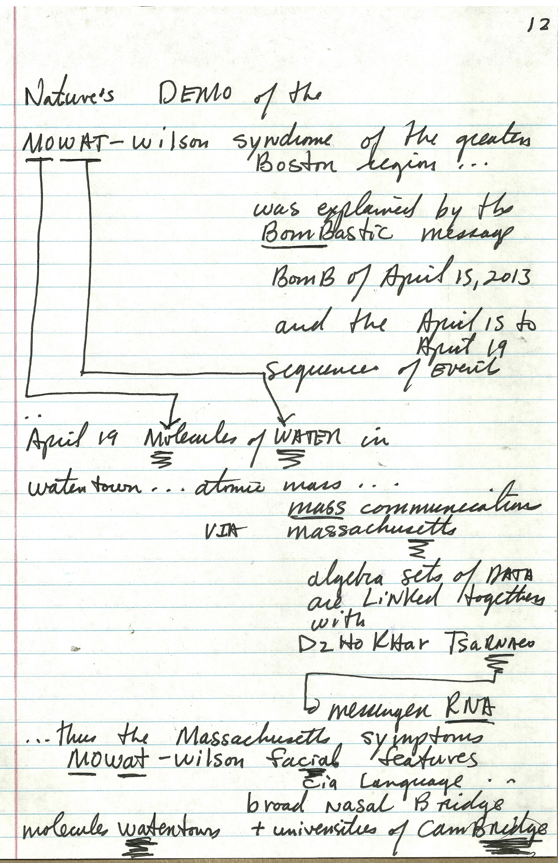 12
Nature's DEMO of the
MOWAT-Wilson syndrome of the greater
Boston region ...
was explained by the
BomBastic message
BomB of April 15, 2013
and the April 15 to
April 19
sequences of Event
..
April 19 Molecules of WATER in
watertown ... atomic mass ...
mass communication
VIA massachusetts
algebra sets of DATA
are LiNKed together
with
DzHoKHar TsaRNAeo
messenger RNA
...thus the Massachusetts symptoms
MOwat-Wilson facial features
Cia Language ..
broad Nasal Bridge
molecules watertown + universities of CamBridge